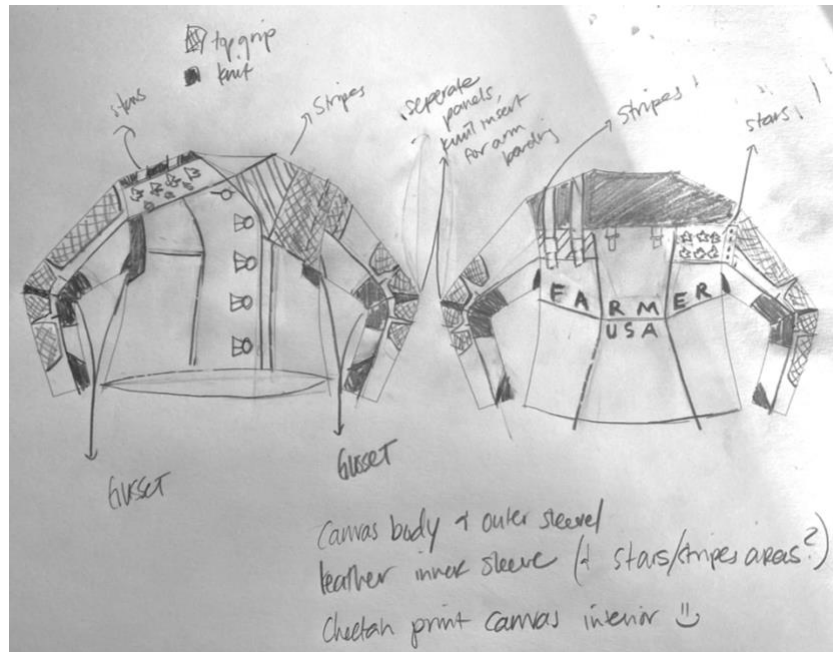 top grip
knit
stars
Stripes
seperate
panels,
knit insert
for arm
bending
Stripes
stars
FARMER
USA
Gusset
Gusset
Canvas body & outer sleeve
leather inner sleeve (& stars/stripes areas?)
Cheetah print canvas interior